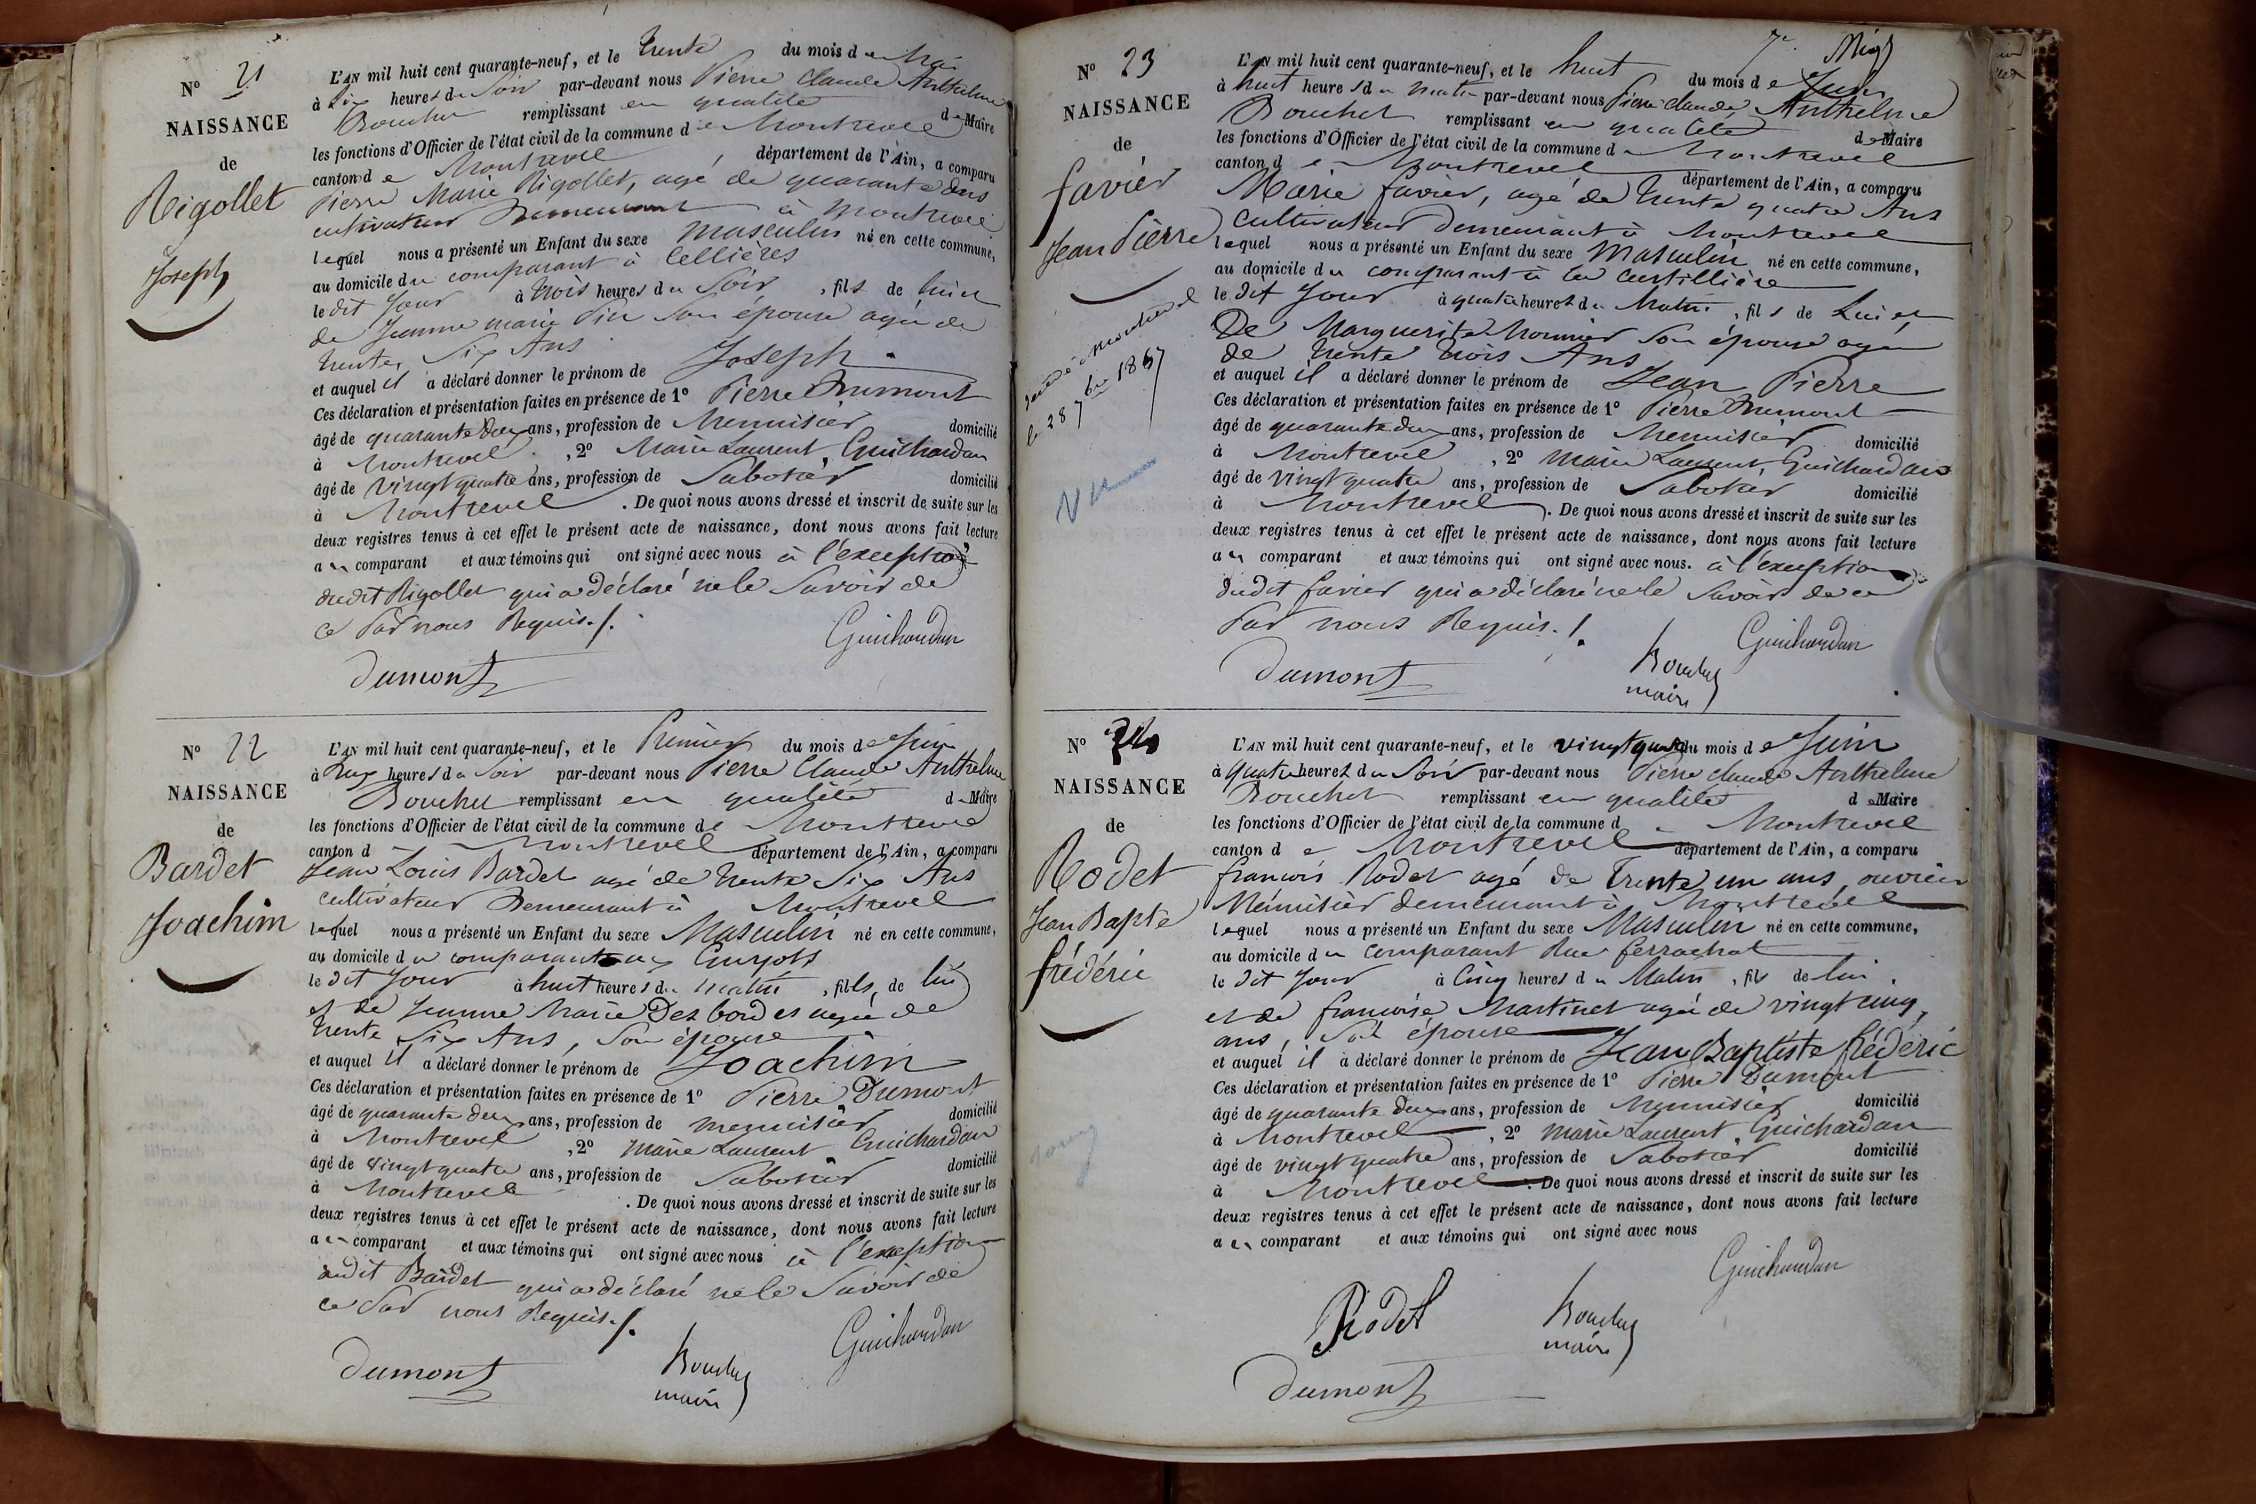 N° 21
NAISSANCE
de
Rigollet
Joseph
L'AN mil huit cent quarante-neuf, et le trente du mois de Mai
à Six heures du Soir par-devant nous Pierre Claude Anthelme
Bouchet remplissant en qualité de Maire
les fonctions d'Officier de l'état civil de la commune de Montrevel
canton de Montrevel, département de l'Ain, a comparu
Pierre Marie Rigollet, agé de quarante deux ans
cultivateur Demeurant à Montrevel
lequel nous a présenté un Enfant du sexe masculin né en cette commune,
au domicile du comparant à Cellières
le dit Jour à trois heures du Soir, fils de lui et
de Jeanne marie Pin Son épouse agée de
trente Six Ans
et auquel il a déclaré donner le prénom de Joseph
Ces déclaration et présentation faites en présence de 1° Pierre Dumont
âgé de quarante deux ans, profession de Menuisier domicilié
à Montrevel, 2° Marie Laurent Guichardan
âgé de vingt quatre ans, profession de Sabotier domicilié
à Montrevel. De quoi nous avons dressé et inscrit de suite sur les
deux registres tenus à cet effet le présent acte de naissance, dont nous avons fait lecture
au comparant et aux témoins qui ont signé avec nous à l'exception
dudit Rigollet qui a déclaré ne le Savoir de
ce Par nous Requis./.
Guichardan
Dumont
N° 22
NAISSANCE
de
Bardet
Joachim
L'AN mil huit cent quarante-neuf, et le Premier du mois de Juin
à Six heures du Soir par-devant nous Pierre Claude Anthelme
Bouchet remplissant en qualité de Maire
les fonctions d'Officier de l'état civil de la commune de Montrevel
canton d Montrevel département de l'Ain, a comparu
Jean Louis Bardet agé de trente Six Ans
cultivateur Demeurant à Montrevel
lequel nous a présenté un Enfant du sexe Masculin né en cette commune,
au domicile du comparant aux Guyots
le dit Jour à huit heures du matin, fils, de lui
et de Jeanne Marie Desbordes agée de
trente Six Ans, Son épouse
et auquel il a déclaré donner le prénom de Joachim
Ces déclaration et présentation faites en présence de 1° Pierre Dumont
âgé de quarante deux ans, profession de menuisier domicilié
à Montrevel, 2° Marie Laurent Guichardan
âgé de vingt quatre ans, profession de Sabotier domicilié
à Montrevel. De quoi nous avons dressé et inscrit de suite sur les
deux registres tenus à cet effet le présent acte de naissance, dont nous avons fait lecture
au comparant et aux témoins qui ont signé avec nous à l'exception
dudit Bardet qui a déclaré ne le Savoir de
ce Par nous Requis./.
Guichardan
Dumont
Bouchet
maire
N° 23
NAISSANCE
de
favier
Jean Pierre
le 28 7bre 1867
L'AN mil huit cent quarante-neuf, et le huit du mois de Juin
à huit heures du matin par-devant nous Pierre Claude Anthelme
Bouchet remplissant en qualité de Maire
les fonctions d'Officier de l'état civil de la commune d Montrevel
canton de Montrevel département de l'Ain, a comparu
Marie favier, agé de trente quatre Ans
Cultivateur demeurant à Montrevel
lequel nous a présenté un Enfant du sexe Masculin né en cette commune,
au domicile du comparant à la Curtillière
le dit Jour à quatre heures du Matin, fils de Lui et
De Marguerite Monnier Son épouse agée
de trente trois Ans
et auquel il a déclaré donner le prénom de Jean Pierre
Ces déclaration et présentation faites en présence de 1° Pierre Dumont
âgé de quarante deux ans, profession de Menuisier domicilié
à Montrevel, 2° marie Laurent Guichardan
âgé de vingt quatre ans, profession de Sabotier domicilié
à Montrevel. De quoi nous avons dressé et inscrit de suite sur les
deux registres tenus à cet effet le présent acte de naissance, dont nous avons fait lecture
au comparant et aux témoins qui ont signé avec nous. à l'exception
dudit favier qui a déclaré ne le Savoir de ce
Par nous Requis./.
Guichardan
Dumont
Bouchet
maire
N° 24
NAISSANCE
de
Rodet
Jean Bapte
frédéric
L'AN mil huit cent quarante-neuf, et le vingt quatre du mois de Juin
à quatre heures du Soir par-devant nous Pierre Claude Anthelme
Bouchet remplissant en qualité de Maire
les fonctions d'Officier de l'état civil de la commune d Montrevel
canton de Montrevel département de l'Ain, a comparu
francois Rodet agé de Trente un ans, ouvrier
Menuisier demeurant à Montrevel
lequel nous a présenté un Enfant du sexe Masculin né en cette commune,
au domicile du comparant Rue ferrachat
le dit Jour à Cinq heures du Matin, fils de lui
et de francoise Martinet agée de vingt cinq
ans, Son épouse
et auquel il a déclaré donner le prénom de Jean Baptiste frédéric
Ces déclaration et présentation faites en présence de 1° Pierre Dumont
âgé de quarante deux ans, profession de Menuisier domicilié
à Montrevel, 2° marie Laurent Guichardan
âgé de vingt quatre ans, profession de Sabotier domicilié
à Montrevel. De quoi nous avons dressé et inscrit de suite sur les
deux registres tenus à cet effet le présent acte de naissance, dont nous avons fait lecture
au comparant et aux témoins qui ont signé avec nous
Guichardan
Rodet
Bouchet
maire
Dumont